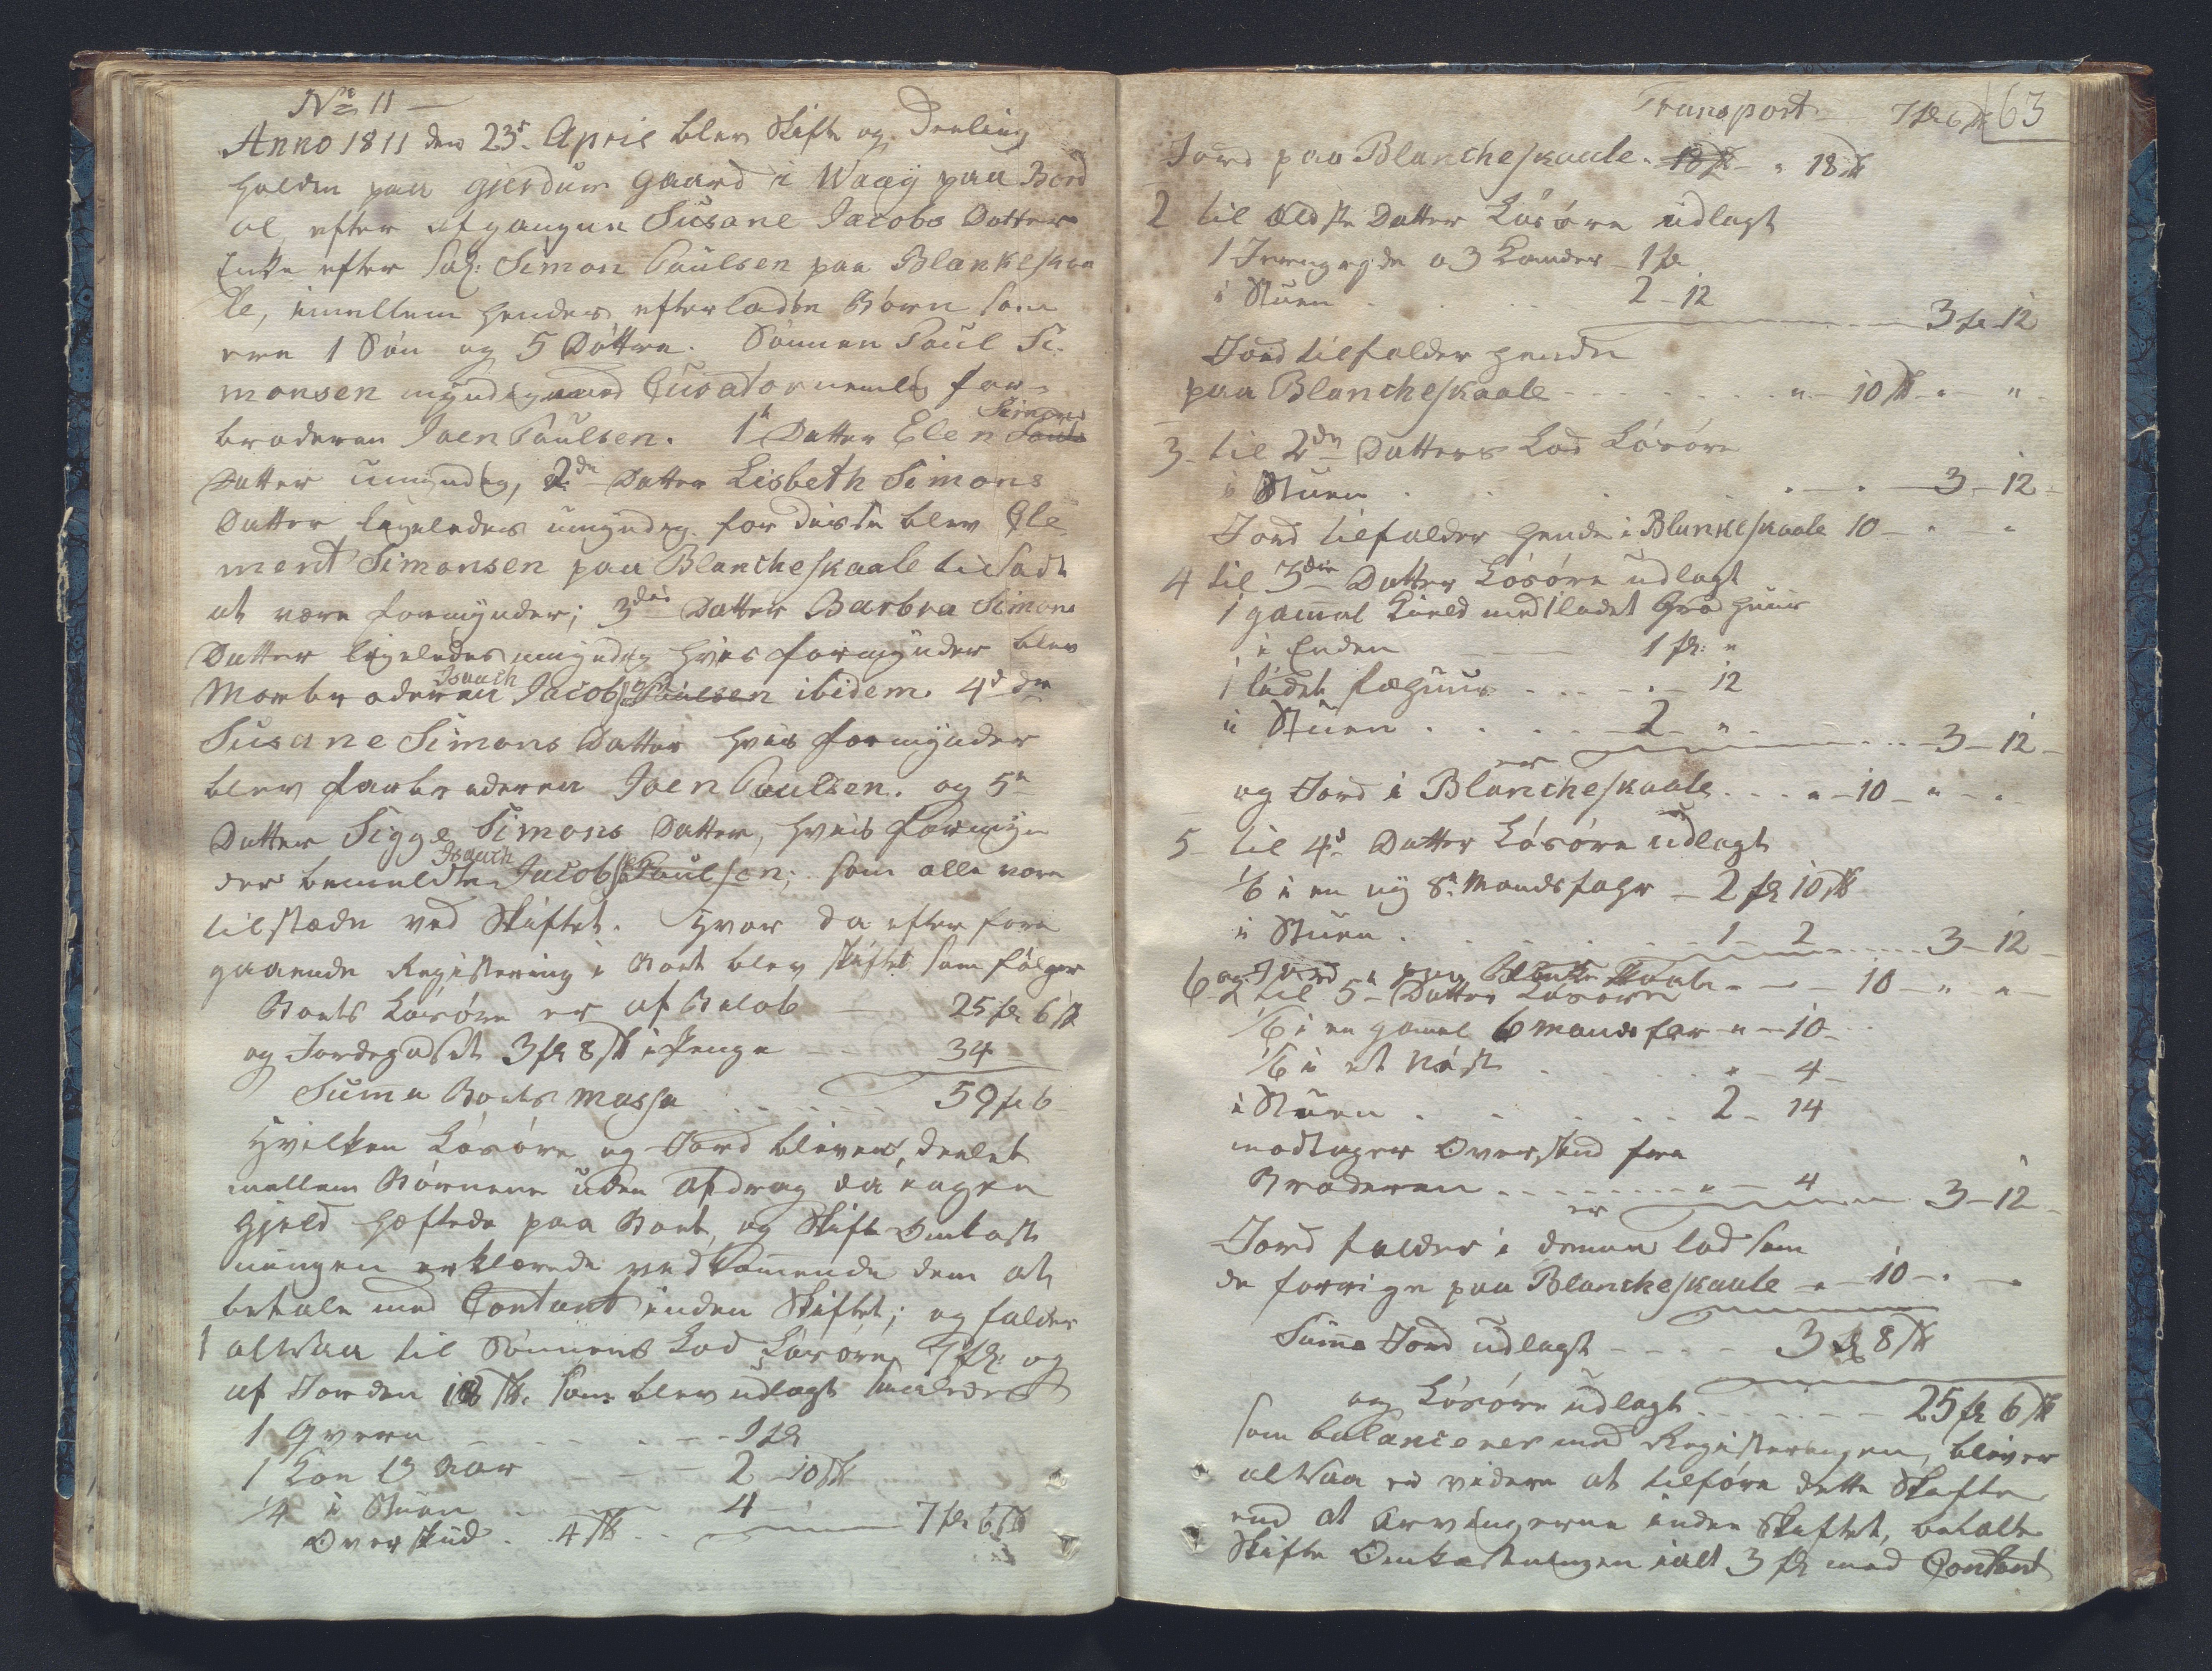 No 11
Anno 1811 den 23de April blev Skifte og Deeling
holden paa gjerdum Gaard i Waag paa Bord
al, efter afgangne Susane Jacobs Datter
Enke efter Sal: Simon Paulsen paa Blankeskaa
le, imellem hendes efterladte Børn som
ere 1 Søn og 5 Døttre. Sønnen Poul Si¬
monsen myndig med Curator nemlig far¬
broderen Joen Paulsen. 1te Datter Elen Simons Pouls
Datter umyndig, 2den Datter Lisbeth Simons
Datter ligeledes umyndig for disse blev Cle
ment Simonsen paa Blancheskaale tilsadt
at være formynder; 3die Datter Barbra Simons
Datter ligeledes umyndig hvis formynder blev
Morbroderen Isaach Jacobs: Paulsen ibidem. 4de Dr
Susane Simons Datter hvis formynder
blev farbroderen Joen Paulsen. og 5te
Datter Sigge Simons Datter, hvis formyn
der bemeldte Isaach Jacobs: Paulsen; som alle vare
tilstæde ved Skiftet. Hvor da efter fore
gaaende Registering i Boet blev skiftet som følger
Boets Løsøre er af Beløb — 25 fl 6 sk
og Jordegodset 3 fl 8 sk i Penge — 34
Suma Boets Massa . . . . 59 fl 6
Hvilken Løsøre og Jord bliver, deelet
mellem Børnene uden Afdrag da ingen
Gjeld hæftede paa Boet, og Skifte Omkost
ningen erklærede vedkommende dem at
betale med Contant inden Skiftet; og falder
1 altsaa til Sønnens Lod Løsøre 7 fl: og
af Jorden 18 sk. som blev udlagt saaledes
1 Qvern - - - - - 1 fl
1 Koe 13 Aar - - - 2 - 10 sk
1/4 i Stuen - - - 4 -
Overskud . . 4 sk . . — 7 fl 6 sk
Transport 7 fl 6 sk 63
Jord paa Blancheskaale. 18 sk " 18 sk
2 til ældste Datter Løsøre udlagt
1 a 3 Lander - 1 fl
i Stuen . . . 2 - 12
— 3 fl - 12
Jord tilfalder hende
paa Blancheskaale - - - - - " - 10 sk " "
3 til 2den Datters Lod Løsøre
i Stuen . . . . . 3 - 12 -
Jord tilfalder hende i Blankeskaale 10 - " "
4 til 3die Datter Løsøre udlagt
1 gammel Kield med 1 ladet huus
i Enden — 1 fl: "
1 lidet fæhuus . . . . . 12
i Stuen . . . . 2 - " .
er — . . 3 - 12 -
og Jord i Blancheskaale . . . " - 10 - " - .
5 til 4de Datter Løsøre udlagt
1/6 i en ny 8te Mandsfahr - 2 fl 10 sk
i Stuen . . . . . 1 - 2 . . . . 3 - 12 -
og Jord paa Blankeskaale - — - 10 - " " -
6 til 5te Datter Løsøre
1/6 i en gamel 6 mands far - " - 10 -
1/6 i et Nøst . . . . " - 4 -
i Stuen . . . . . 2 - 14
modtager Overskud fra
Broderen . . . . . . . . " - 4
er — 3 - 12 -
Jord falder i denne lod som
de forrige paa Blancheskaale - " - 10 - " - "
Suma Jord udlagt - - - - 3 fl 8 sk
og Løsøre udlagt . . . . . 25 fl 6 sk
som balancerer med Registeringen, bliver
altsaa ei videre at tilføre dette Skifte
end at Arvingerne inden Skiftet, betalte
Skifte Omkostningen ialt 3 fl med Contant